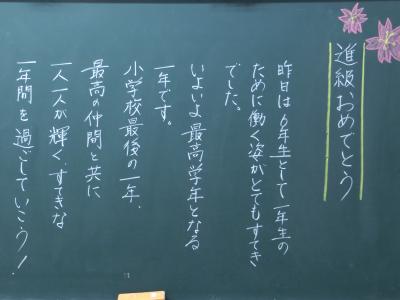 進級おめでとう
昨日は6年生として一年生の
ために働く姿がとてもすてき
でした。
いよいよ最高学年となる
一年です。
小学校最後の一年、
最高の仲間と共に
一人一人が輝く、すてきな
一年間を過ごしていこう!